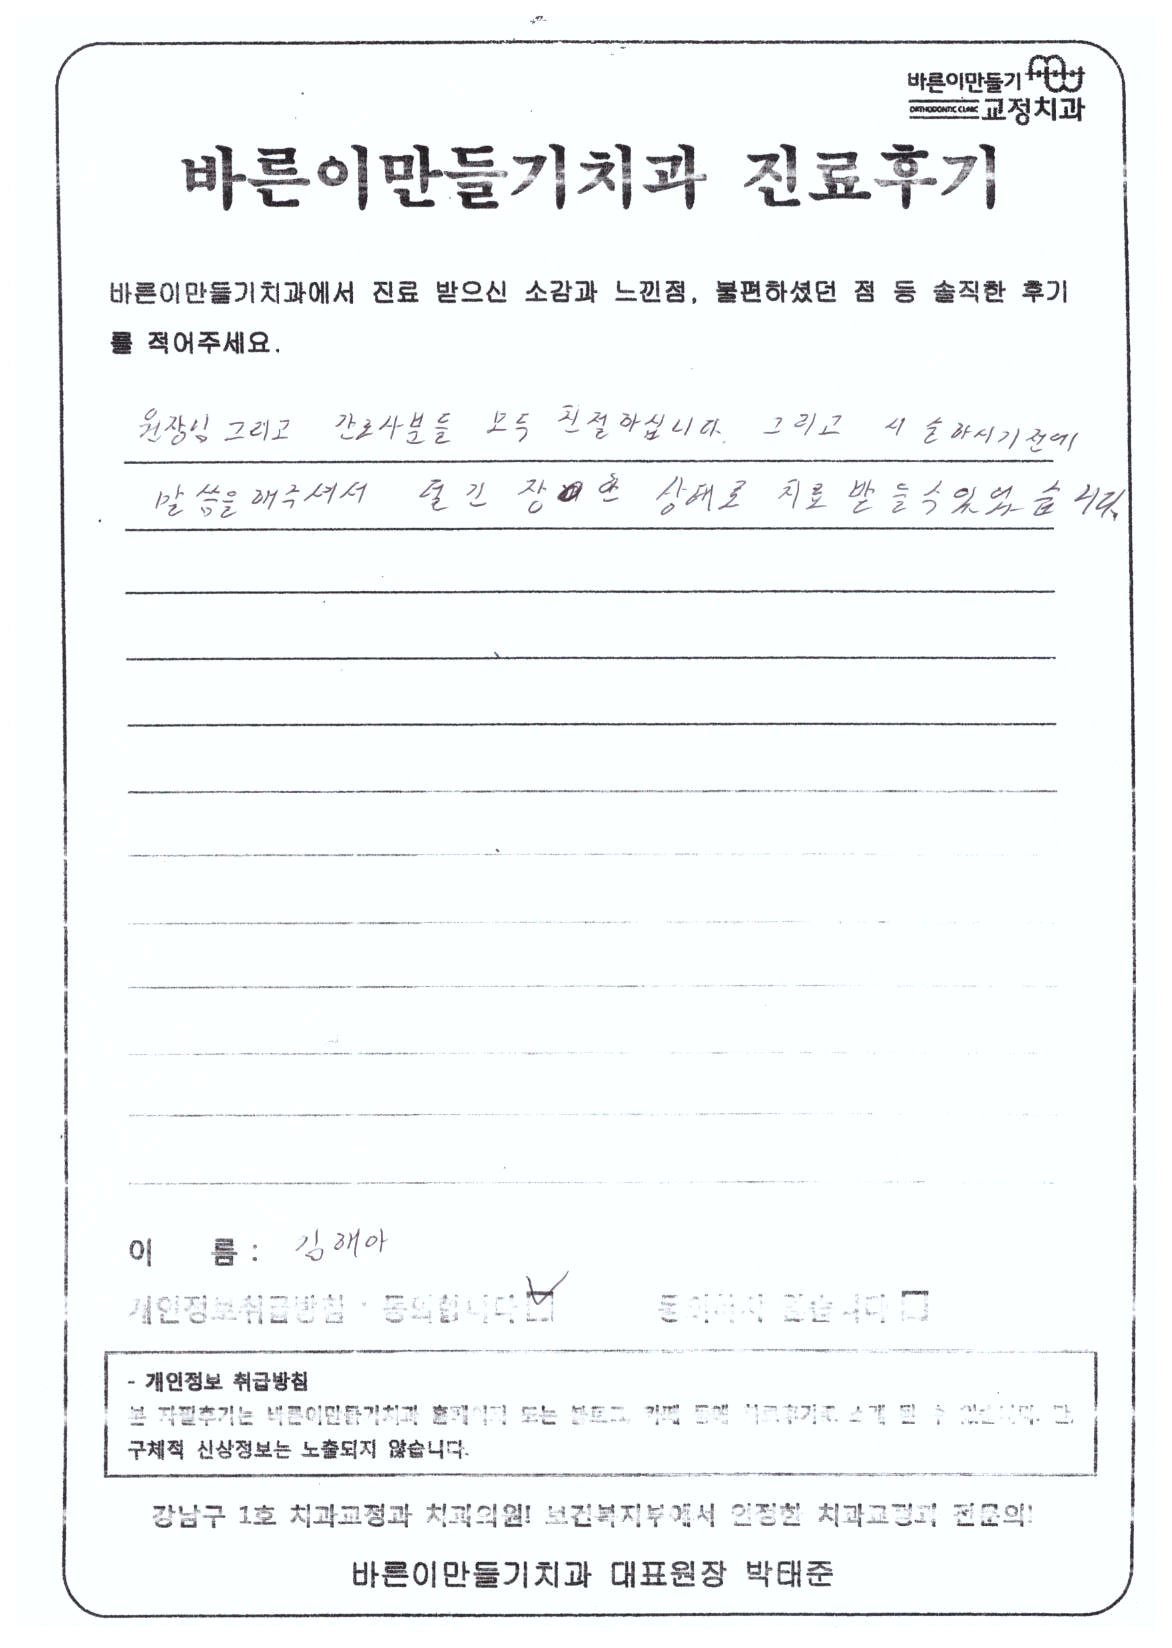 바른이만들기
ORTHODONTIC CLINIC 교정치과
바른이만들기치과 진료후기
바른이만들기치과에서 진료 받으신 소감과 느낀점, 불편하셨던 점 등 솔직한 후기
를 적어주세요.
원장님 그리고 간호사분들 모두 친절하십니다. 그리고 시술하시기전에
말씀을 해주셔서 덜 긴장한 상태로 치료 받을수있었습니다.
이 름 : 김해아
개인정보취급방침 : 동의합니다 동의하지 않습니다
- 개인정보 취급방침
본 자필후기는 바른이만들기치과 홈페이지 또는 블로그, 카페 등에 치료후기로 소개 될 수 있습니다. 단,
구체적 신상정보는 노출되지 않습니다.
강남구 1호 치과교정과 치과의원! 보건복지부에서 인정한 치과교정과 전문의!
바른이만들기치과 대표원장 박태준